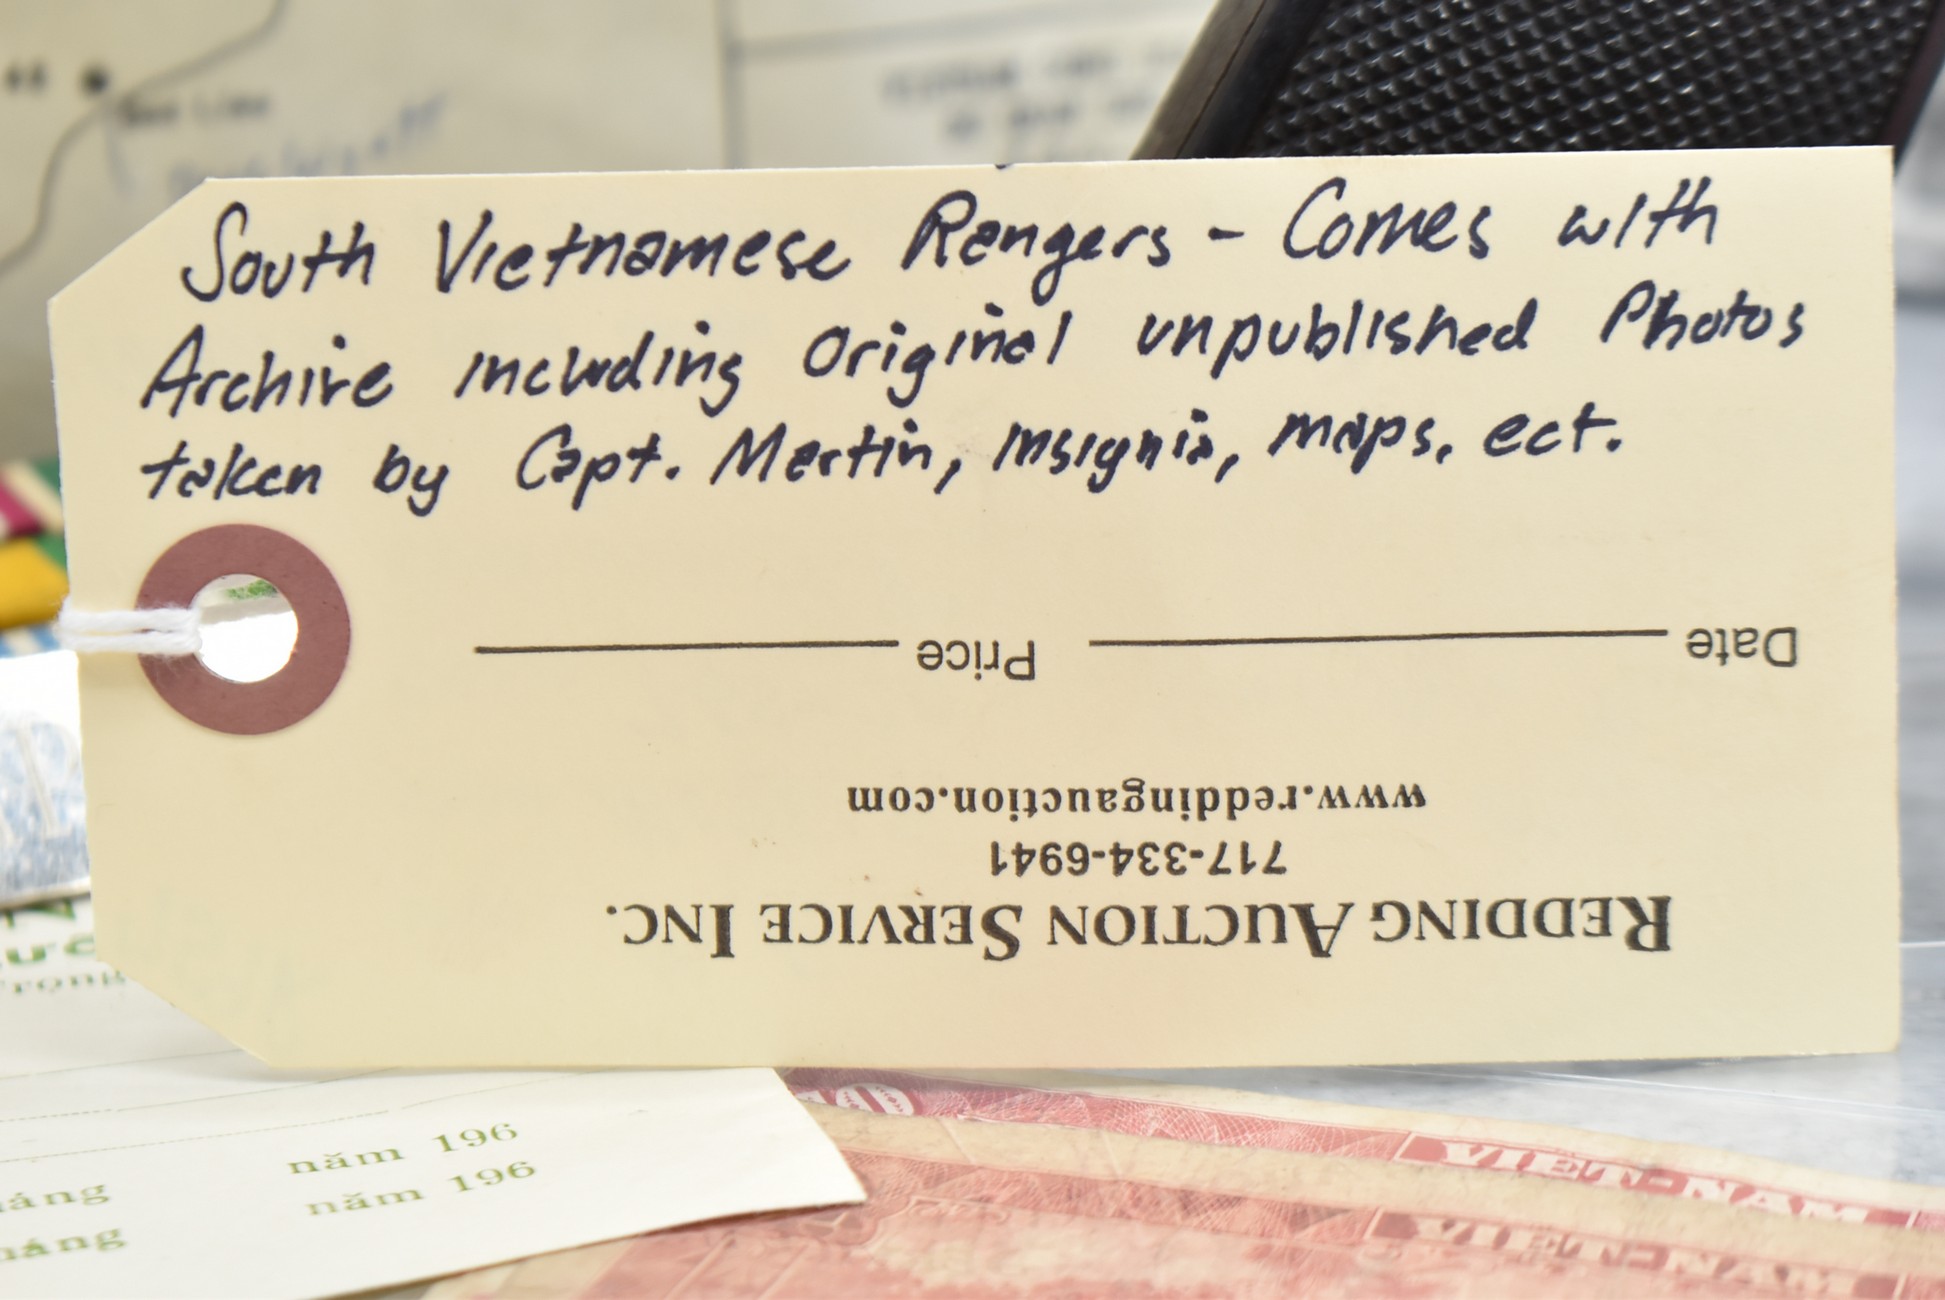 South Vietnamese Rangers - Comes with
Archive including Original unpublished Photos
taken by Capt. Martin, insignia, maps, ect.
Date Price
www.reddingauction.com
717-334-6941
REDDING AUCTION SERVICE INC.
năm 196
năm 196
VIET-NAM
VIET-NAM